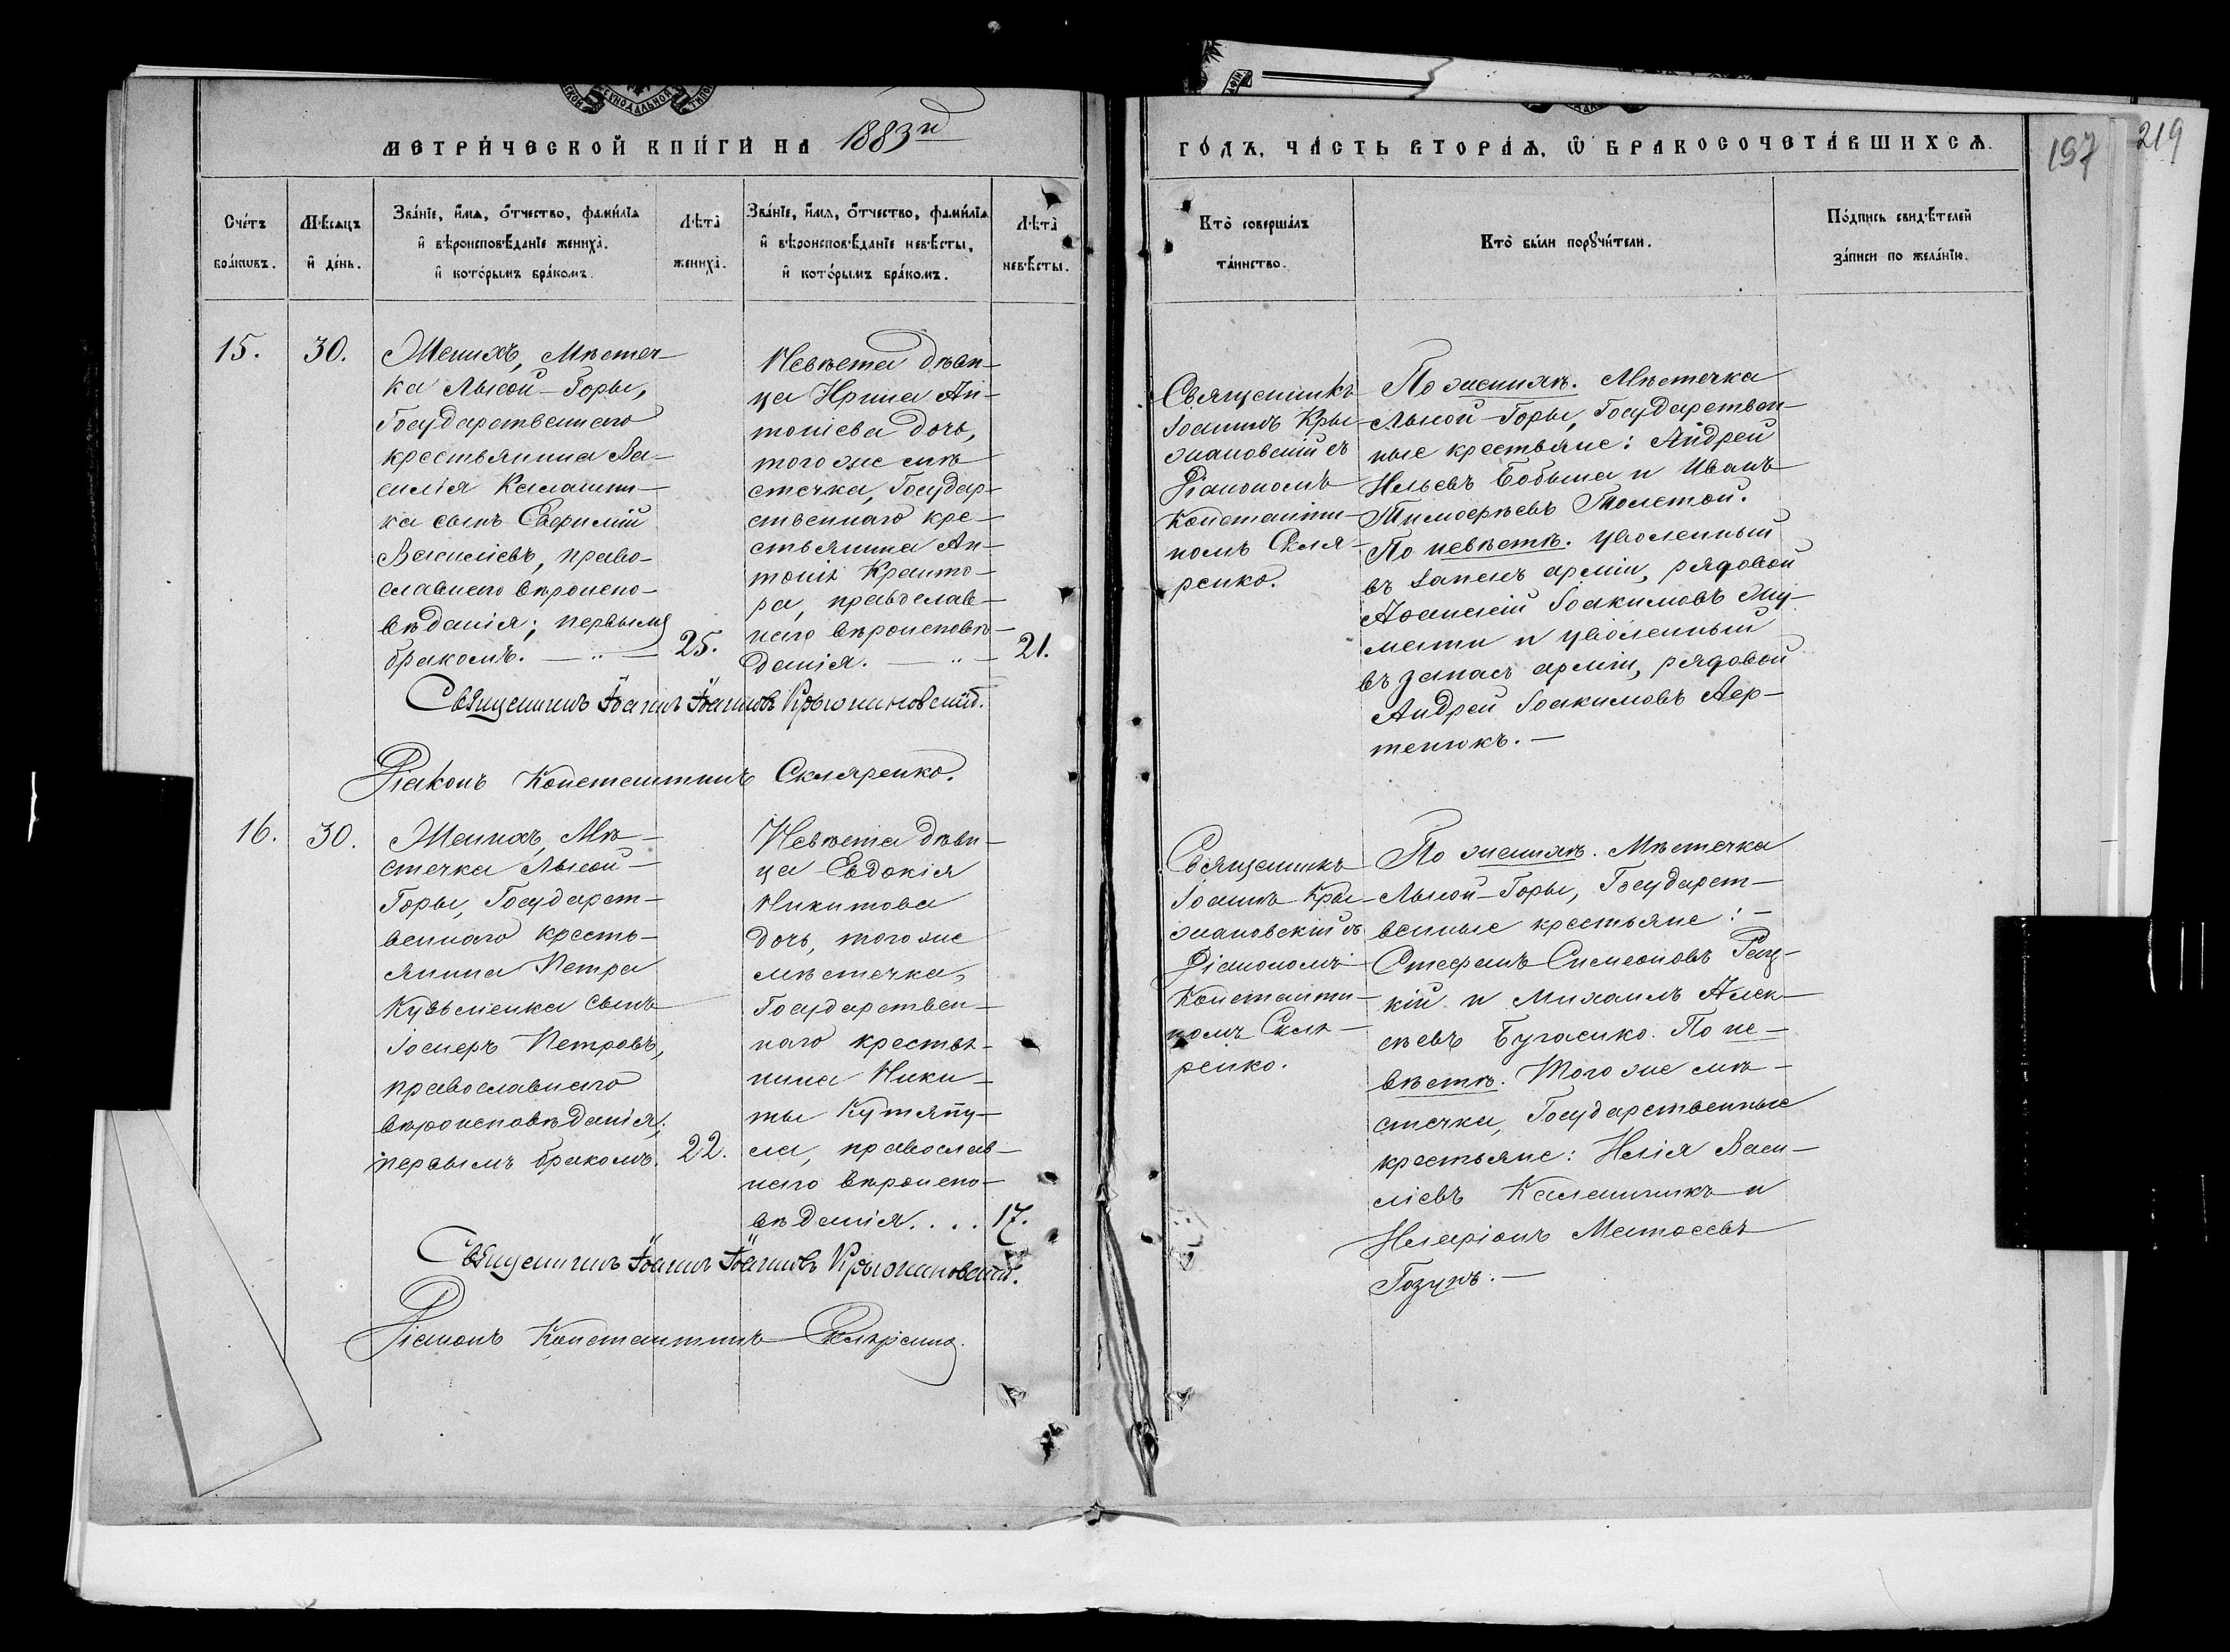 МЕТРИ́ЧЕСКОЙ КНИ́ГИ НА 1883й
ГО́ДЪ, ЧА́СТЬ ВТОРА́Ѧ, Ѿ БРАКОСОЧЕТА́ВШИХСѦ.
197
219
Сче́тъ
бра́кѡвъ.
Мѣ́сѧцъ
и҆ де́нь.
Зва́нїе, и҆́мѧ, ѻ҆́тчество, фами́лїѧ
и҆ вѣроисповѣ́данїе жениха̀.
и҆ кото́рымъ бра́комъ.
Лѣ́та
жениха̀.
Зва́нїе, и҆́мѧ, ѻ҆́тчество, фами́лїѧ
и҆ вѣроисповѣ́данїе невѣ́сты,
и҆ кото́рымъ бра́комъ.
Лѣ́та
невѣ́сты.
Кто̀ соверша́лъ
та́инство.
Кто̀ бы́ли порꙋчи́тели.
По́дпись свидѣ́телей
за́писи по жела́нїю.
15.
30.
Женихъ, Мѣстеч-
ка Лысой-Горы,
Государственнаго
крестьянина Ва-
силія Калашни-
ка сынъ Евфимій
Васильевъ, право-
славнаго вѣроиспо-
вѣданія; первымъ
бракомъ. — „ —
25.
Невѣста дѣви-
ца Ирина Ан-
тоніева дочь,
того же мѣ-
стечка, Государ-
ственнаго кре-
стьянина Ан-
тонія Крамо-
ра, православ-
наго вѣроисповѣ-
данія. — „ —
21.
Священникъ
Іоаннъ Кры-
жановскій съ
Діакономъ
Константи-
номъ Скля-
ренко.
По женихѣ. Мѣстечка
Лысой-Горы, Государствен-
ные крестьяне: Андрей
Ильевъ Бобыша и Иванъ
Тимоѳеевъ Толстой.
По невѣстѣ. уволенный
въ запасъ арміи, рядовой
Аѳанасій Іоакимовъ
и уволенный
въ запасъ арміи, рядовой
Андрей Іоакимовъ Аер-
тенюкъ. —
Священникъ Іоаннъ Іоанновъ Крыжановскій.
Діаконъ Константинъ Скляренко.
16.
30.
Женихъ, Мѣ-
стечка Лысой-
Горы, Государст-
веннаго кресть-
янина Петра
Кузьменка сынъ
Іосифъ Петровъ,
православнаго
вѣроисповѣданія;
первымъ бракомъ.
22.
Невѣста дѣви-
ца Евдокія
Никитова
дочь, того же
мѣстечка,
Государствен-
наго крестья-
нина Ники-
ты Кутяпу-
ла, православ-
наго вѣроиспо-
вѣданія. . . .
17.
Священникъ
Іоаннъ Кры-
жановскій съ
Діакономъ
Константи-
номъ Скля-
ренко.
По женихѣ. Мѣстечка
Лысой-Горы, Государст-
венные крестьяне: —
Стефанъ Симеоновъ Рац-
кій и Михаилъ Алек-
сѣевъ Бугаенко. По не-
вѣстѣ. Того же мѣ-
стечка, Государственные
крестьяне: Илія Васи-
ліевъ Калашникъ и
Иларіонъ Матѳеевъ
Гозунъ. —
Священникъ Іоаннъ Іоанновъ Крыжановскій.
Діаконъ Константинъ Скляренко.